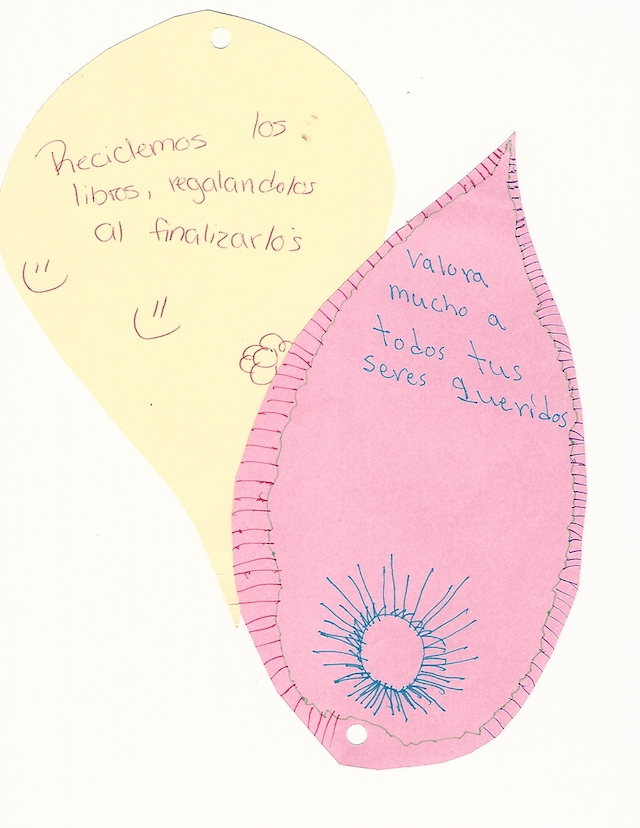 Reciclemos los
libros, regalandolos
al finalizarlos
Valora
mucho a
todos tus
seres queridos